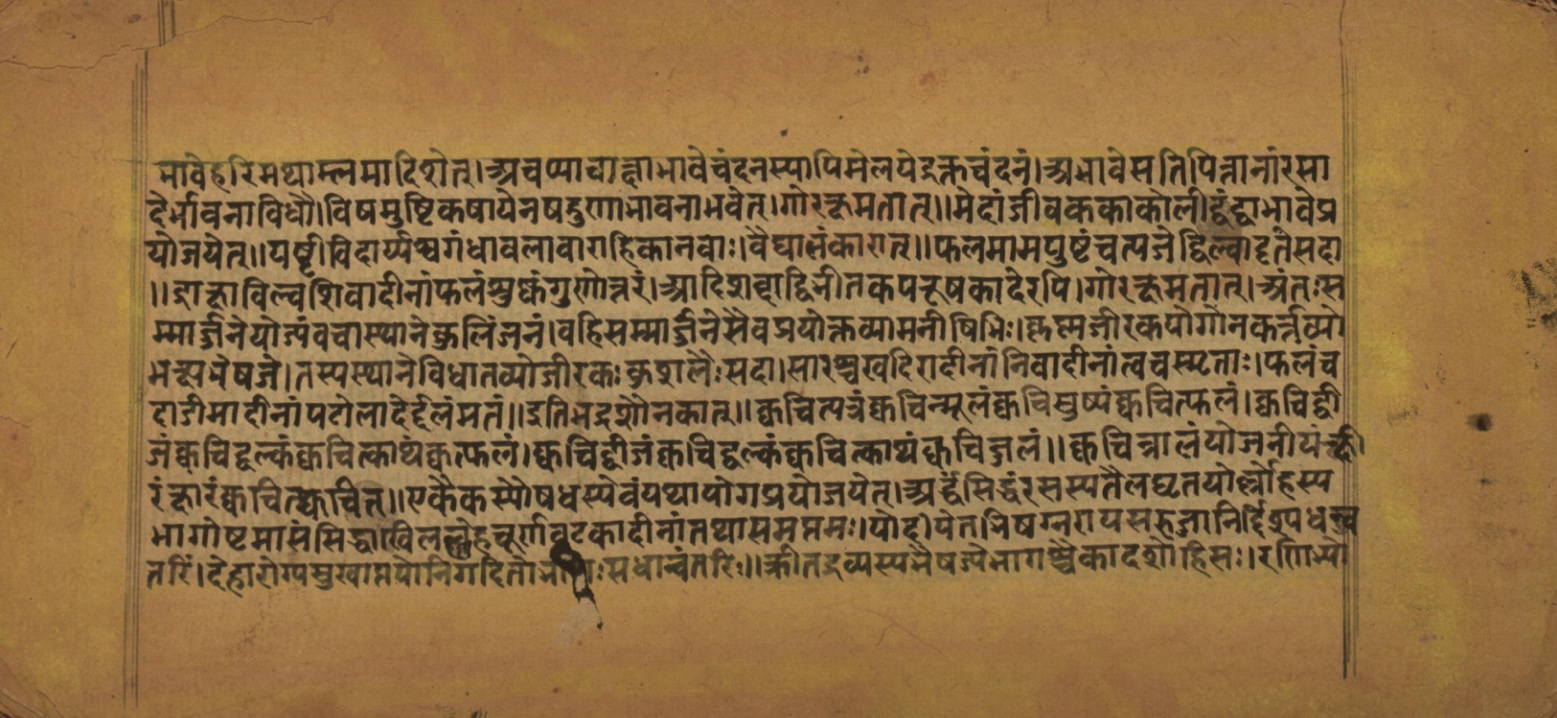 मावेहरिमथाम्लमादिशेत्।अचप्याचाह्नाभावेचंदनस्यापिमेलयेद्रक्तचंदनं।अभावेसतिपित्तानांरसा
देर्भावनाविधौ।विषमुष्टिकषायेनषद्गुणाभावनाभवेत्।गोरक्षमतात्॥मेदांजीवककाकोलीद्वंद्वाभावेप्र
योजयेत्॥यष्टीविदार्य्यश्वगंधावलावाराहिकानवाः।वैद्यालंकारात्॥फलमामपुष्टंचत्यजेद्विल्वादृतेसदा
॥द्राक्षाविल्वशिवादीनांफलंशुष्कंगुणोत्तरं।आदिशब्दाद्विभीतकपरूषकादेरपि।गोरक्षमतात्।अंतःस
म्मार्ज्जनेयोज्यंवचास्थानेकुलिंजनं।वहिसम्मार्ज्जनेसैवप्रयोक्तव्यामनीषिभिः।कृष्णजीरकयोगोनकर्त्तव्यो
भक्ष्यभेषजे।तस्यस्थानेविधातव्योजीरकःकुशलैःसदा।सारश्चखदिरादीनांनिवादीनांत्वचस्मृताः।फलंच
दाडीमादीनांपटोलादेर्दृलंमतं॥इतिभद्रशौनकात्॥क्वचित्पत्रंक्वचिन्मूलंक्वचित्पुष्पंक्वचित्फलं।क्वचिद्वी
जंक्वचिद्वल्कंक्वचित्काथंक्वत्फलं।क्वचिद्वीजंक्वचिद्वल्कंक्वचित्काथंक्वचिज्जलं॥क्वचिन्नालंयोजनीयंक्षी
रंक्षारंक्वचित्क्वचित्॥एकैकस्यौषधस्यैवंयथायोगप्रयोजयेत्।अर्द्धंसिद्धंरसस्यतैलघृतयोर्ल्लेहस्य
भागोष्टमासंसिद्धाखिललोहचूर्णवटकादीनांतथासप्तमः।योदीयेत्भिषग्वरायसरुजानिर्दिश्यधन्व
तरिं।देहारोग्यसुखाप्तयेनिगदितो सधान्वंतरिः॥क्रीतद्रव्यस्यभैषज्येभागश्चैकादशोहिसः।